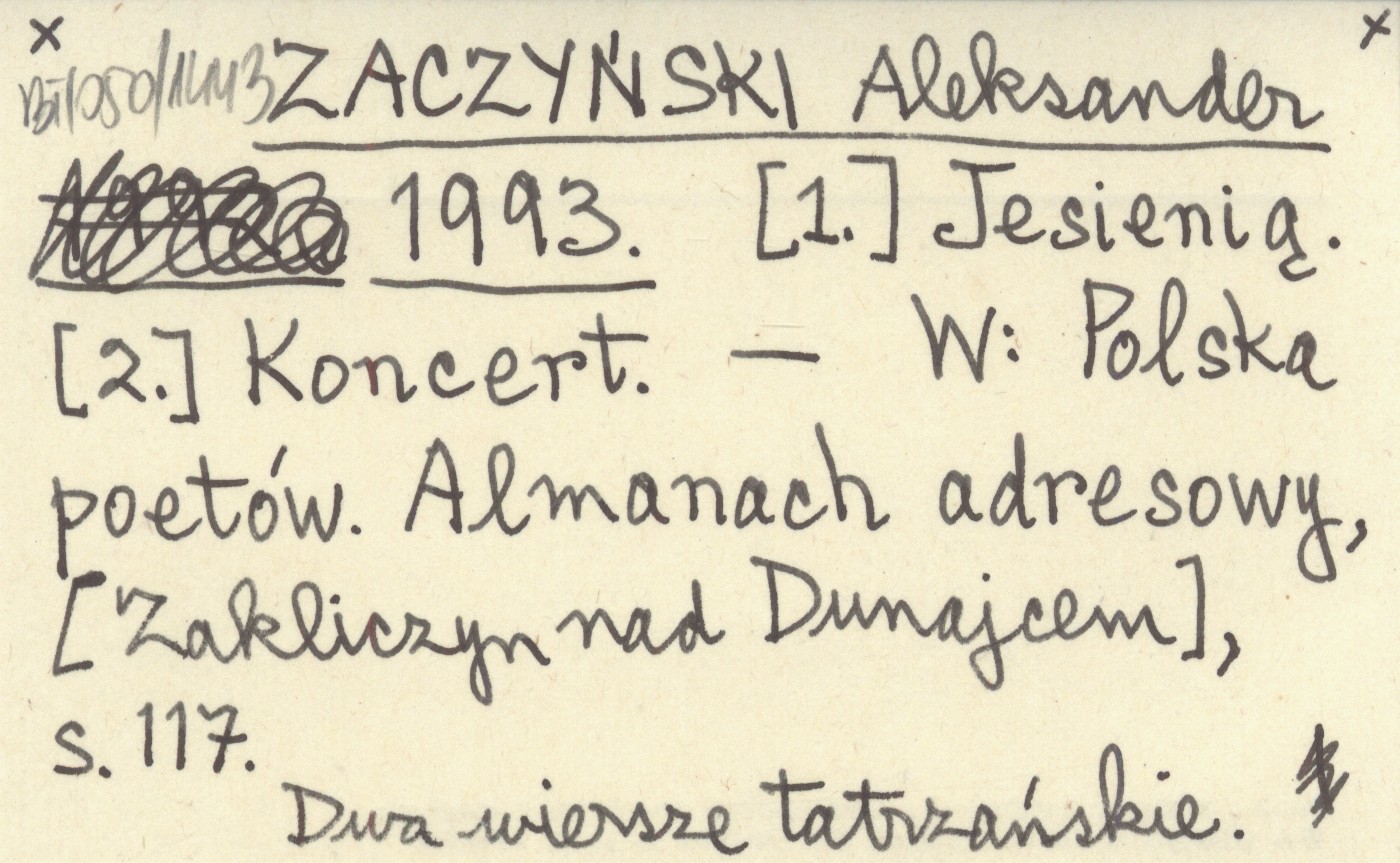 x x
ZACZYŃSKI Aleksander
1993. [1.] Jesienią.
[2.] Koncert. — W: Polska
poetów. Almanach adresowy,
[Zakliczyn nad Dunajcem],
s. 117.
Dwa wiersze tatrzańskie.